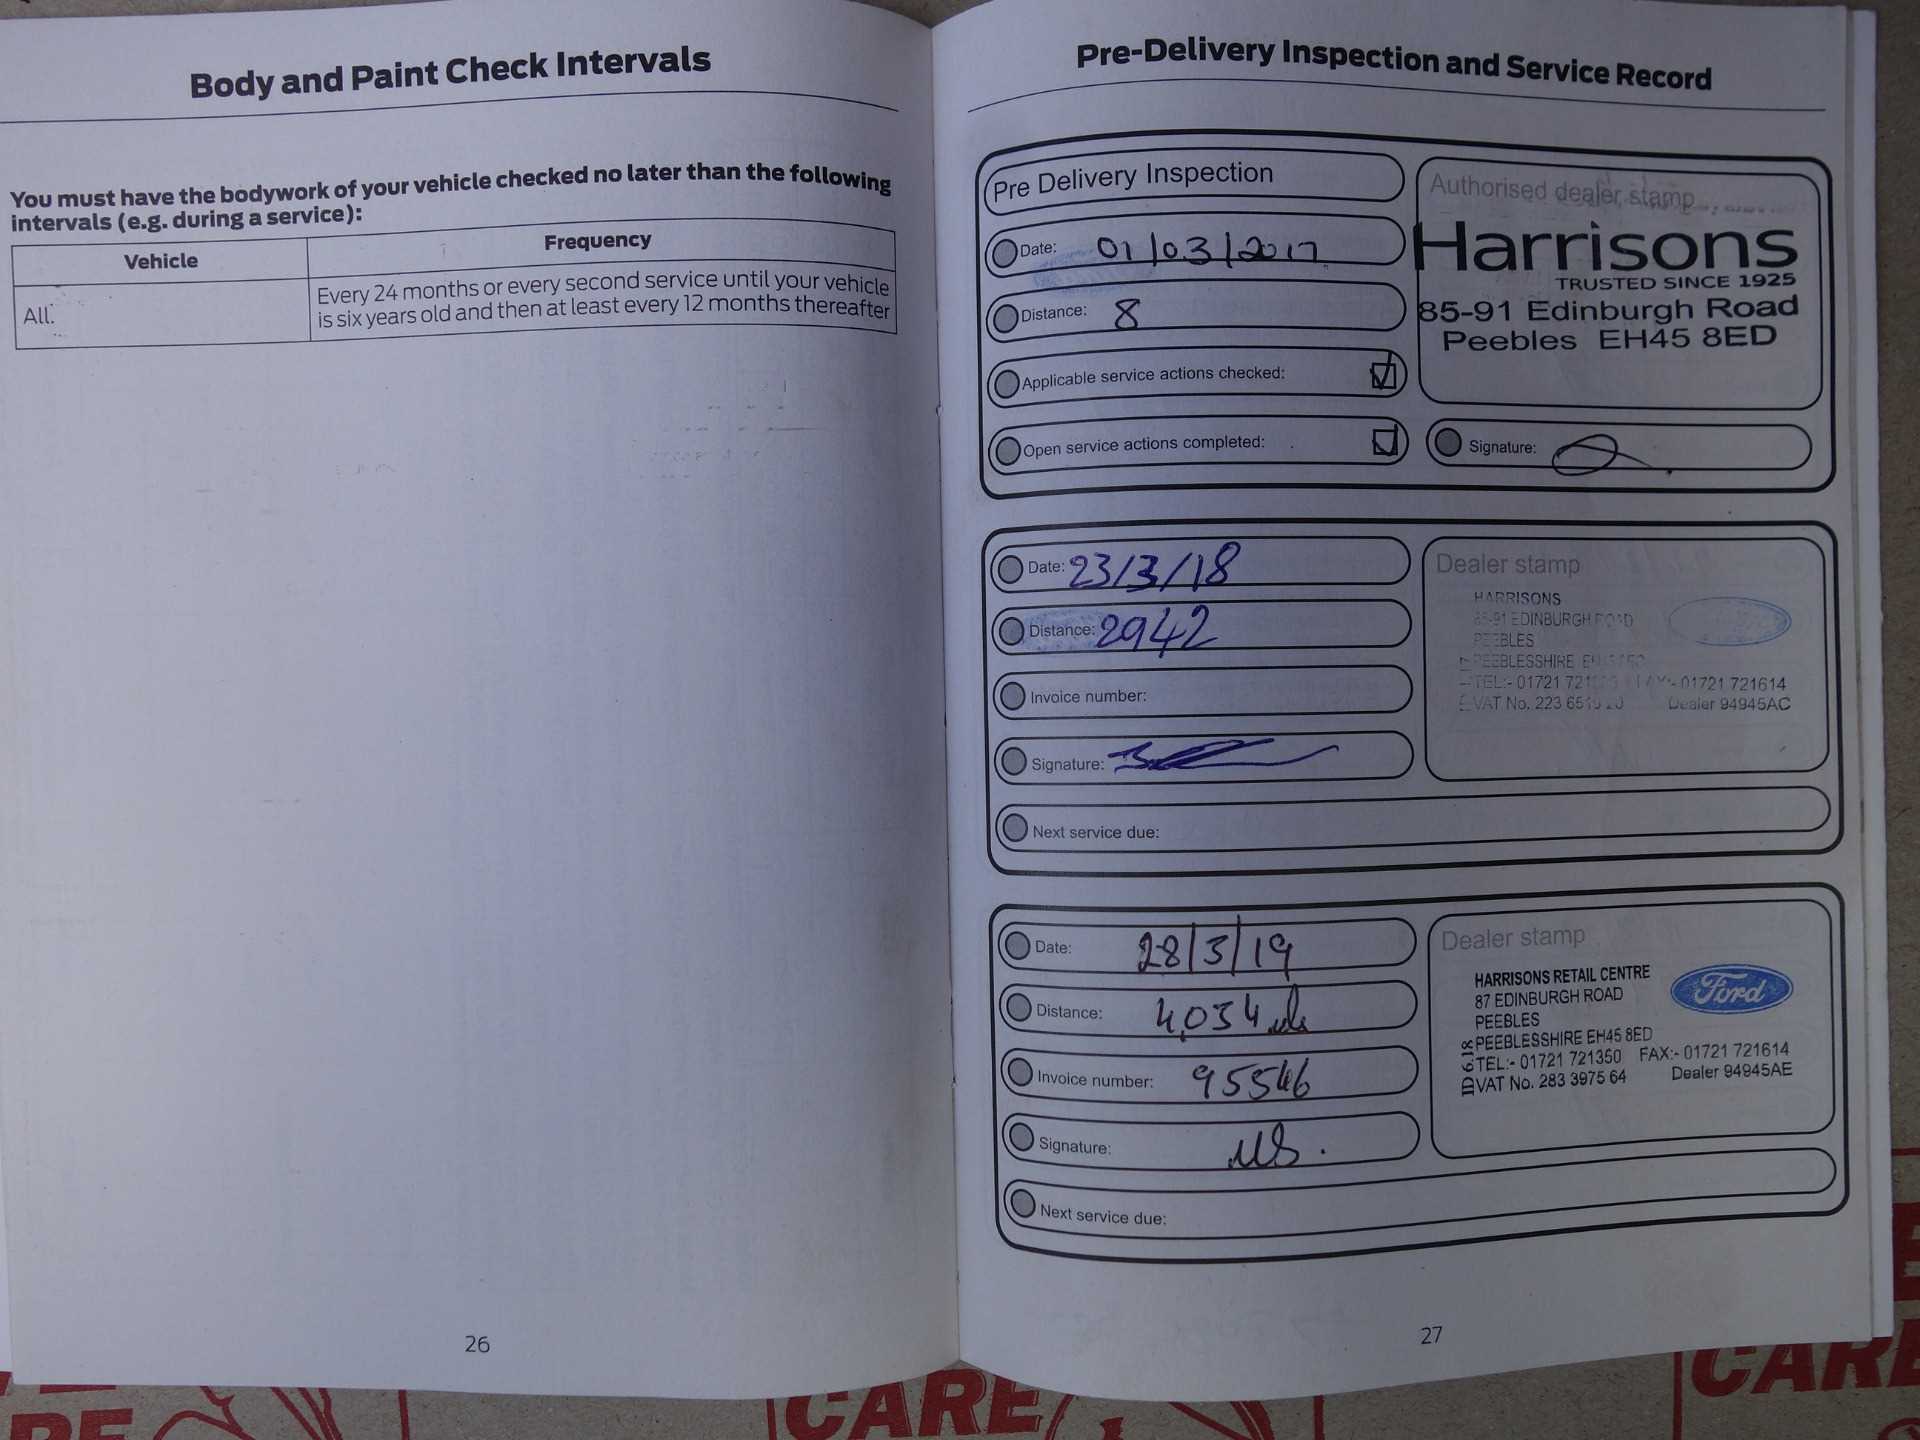 Body and Paint Check Intervals
You must have the bodywork of your vehicle checked no later than the following
intervals (e.g. during a service):
Vehicle
Frequency
All.
Every 24 months or every second service until your vehicle
is six years old and then at least every 12 months thereafter
26
Pre-Delivery Inspection and Service Record
Pre Delivery Inspection
Date: 01/03/2017
Distance: 8
Applicable service actions checked:
Open service actions completed:
Authorised dealer stamp
Harrisons
TRUSTED SINCE 1925
85-91 Edinburgh Road
Peebles EH45 8ED
Signature:
Date: 23/3/18
Distance: 2942
Invoice number:
Signature:
Next service due:
Dealer stamp
HARRISONS
85-91 EDINBURGH ROAD
PEEBLES
PEEBLESSHIRE
TEL:- 01721 FAX:- 01721 721614
VAT No. 223 Dealer 94945AC
Date: 28/3/19
Distance: 4,034
Invoice number: 95546
Signature:
Next service due:
Dealer stamp
HARRISONS RETAIL CENTRE
87 EDINBURGH ROAD
PEEBLES
PEEBLESSHIRE EH45 8ED
TEL:- 01721 721350 FAX:- 01721 721614
VAT No. 283 3975 64 Dealer 94945AE
Ford
27
CARE
CARE